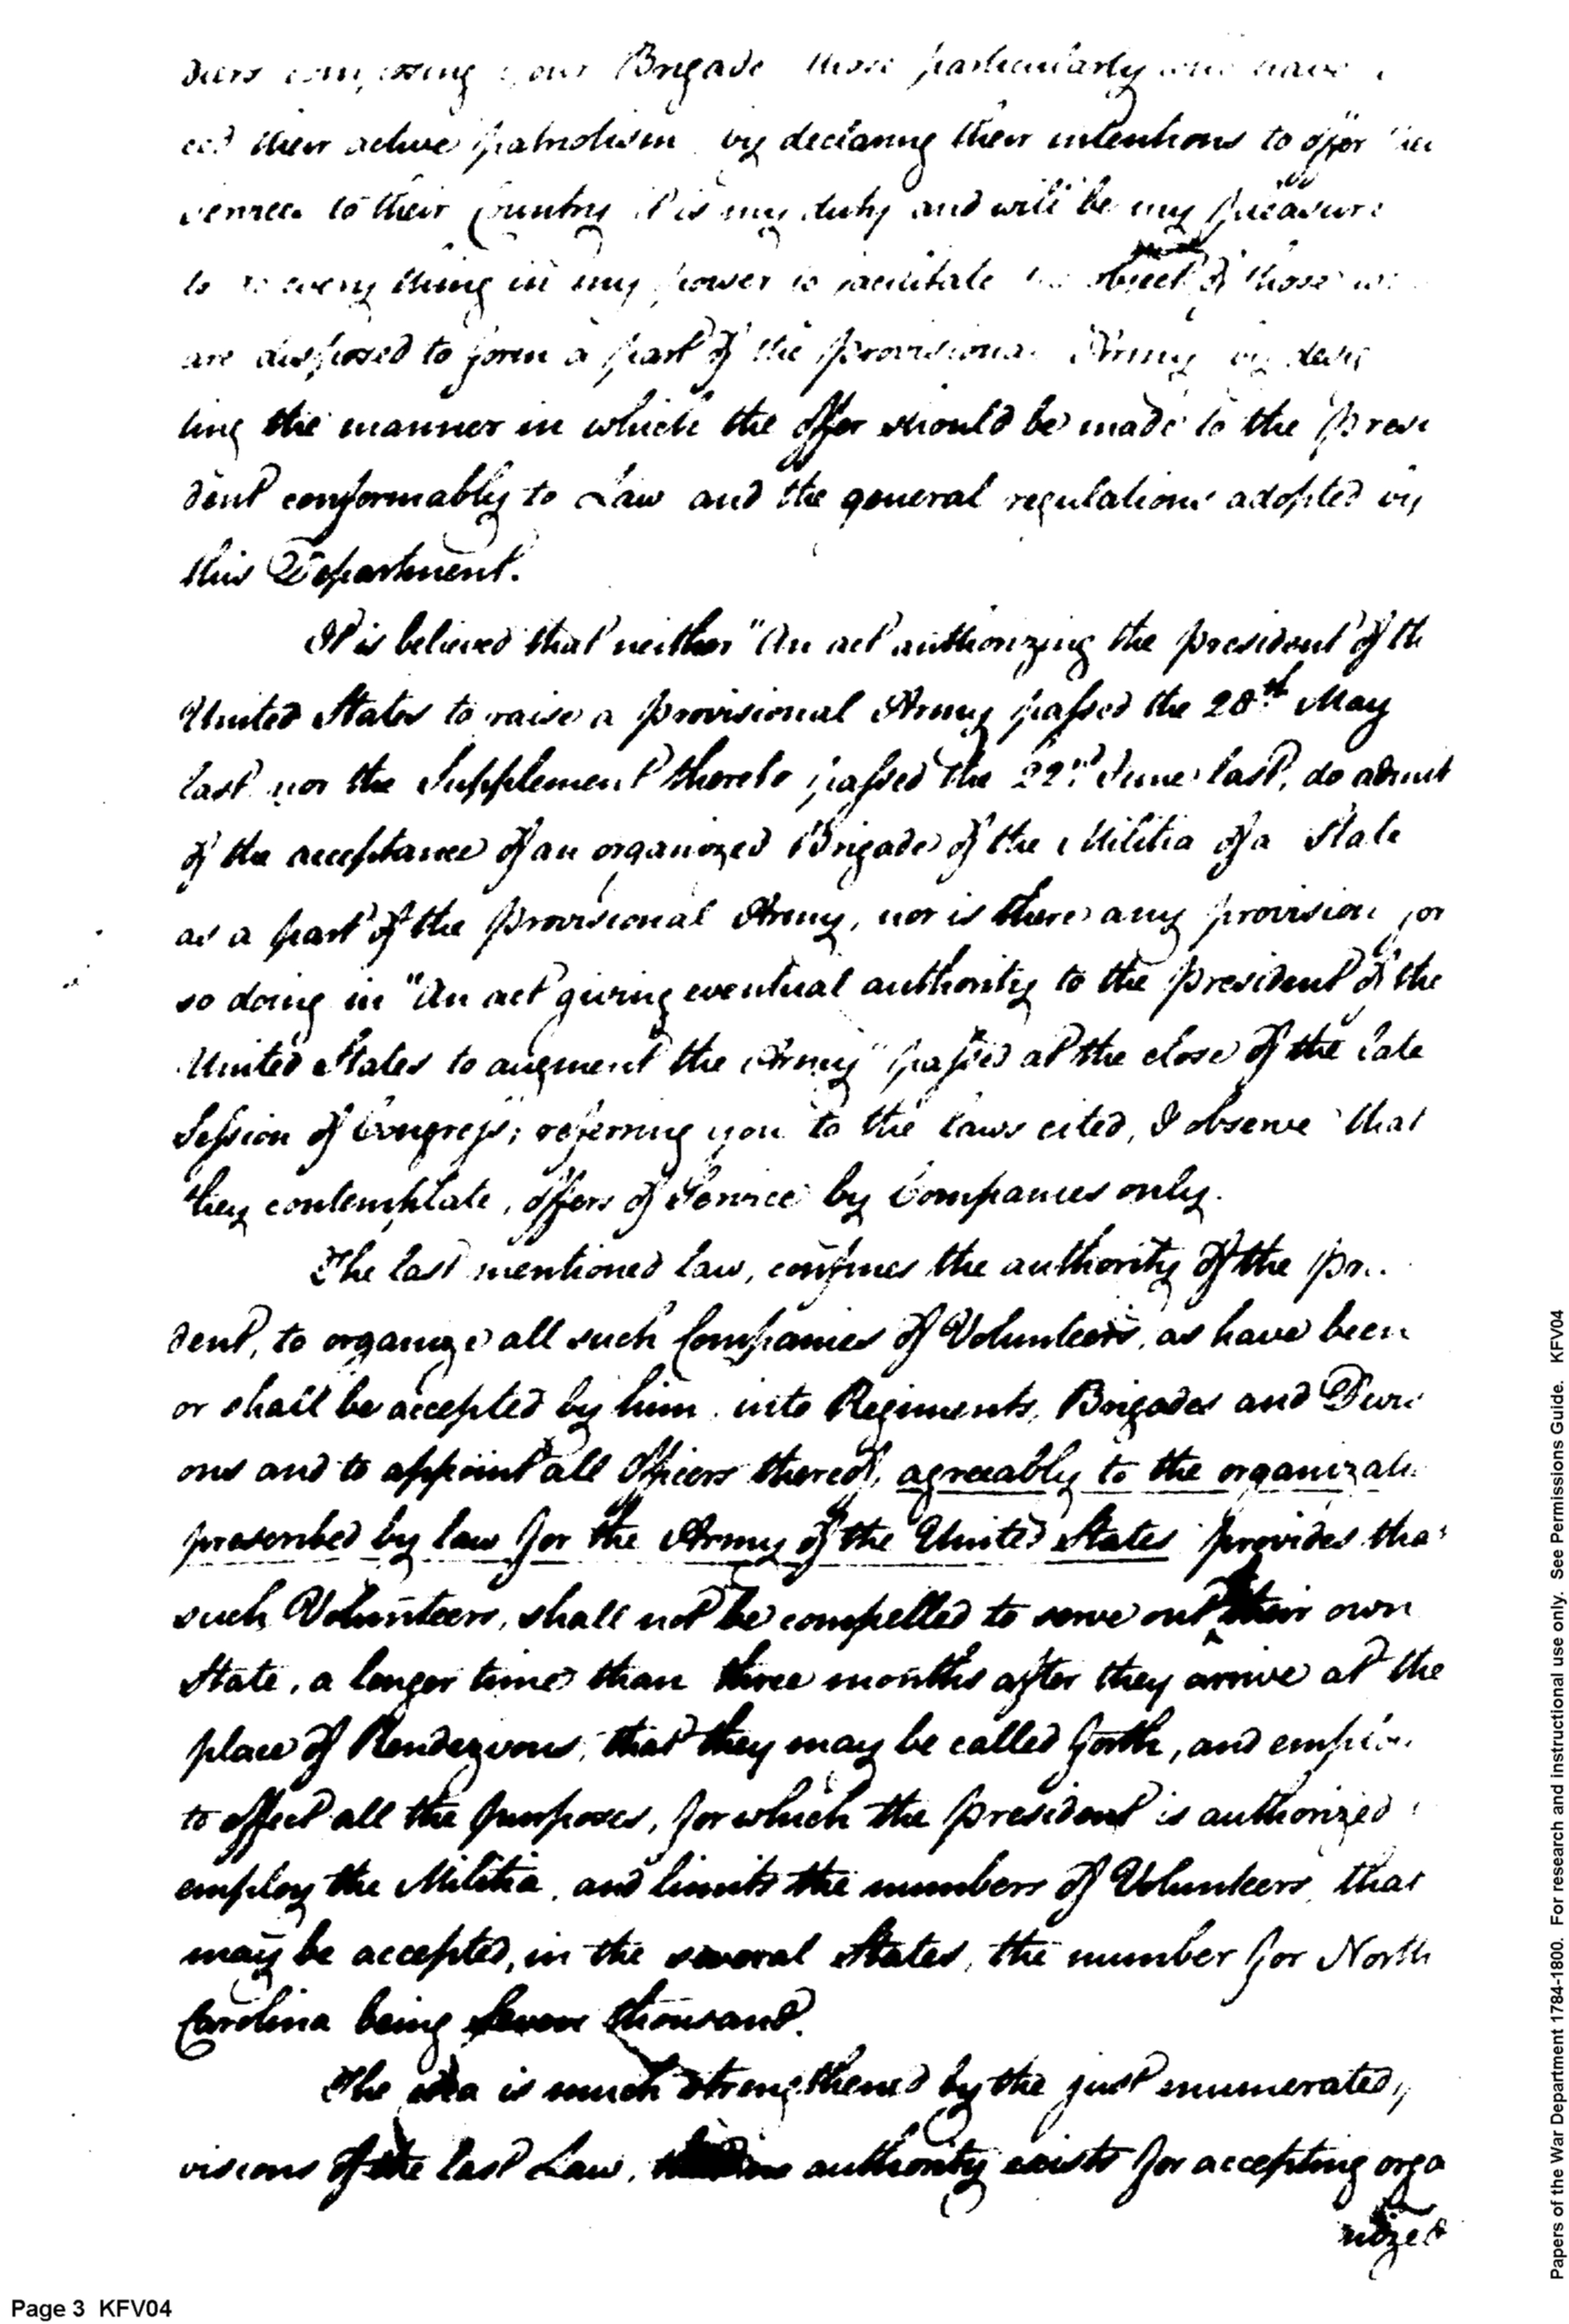 diers composing your Brigade those particularly who have
ced their active patriotism by declaring their intentions to offer their
services to their Country it is my duty and will be my pleasure
to do every thing in my power to facilitate the object of those who
are disposed to form a part of the provisional Army by
ting the manner in which the offer should be made to the Presi
dent conformably to Law and the general regulations adopted by
this Department.
It is believed that neither "An act authorizing the president of the
United States to raise a provisional Army passed the 28th May
last nor the Supplement thereto passed the 22nd June last, do admit
of the acceptance of an organized Brigade of the Militia of a State
as a part of the provisional Army, nor is there any provision for
so doing in "An act giving eventual authority to the president of the
United States to augment the Army" passed at the close of the late
Session of Congress; referring you to the laws cited, I observe that
they contemplate, offers of Service by Companies only.
The last mentioned law, confines the authority of the Pre
dent, to organize all such Companies of Volunteers, as have been
or shall be accepted by him, into Regiments, Brigades and Divi
ons and to appoint all Officers thereof, agreeably to the organizati
prescribed by law for the Army of the United States provides that
such Volunteers, shall not be compelled to serve out their own
State, a longer time than three months after they arrive at the
place of Rendezvous, that they may be called forth, and employ
to effect all the purposes, for which the president is authorized
employ the Militia, and limits the numbers of Volunteers, that
may be accepted, in the several States, the number for North
Carolina being Seven thousand.
The idea is much strengthened by the just enumerated,
visions of the last Law, authority exists for accepting orga
nized
Page 3 KFV04
Papers of the War Department 1784-1800. For research and instructional use only. See Permissions Guide. KFV04